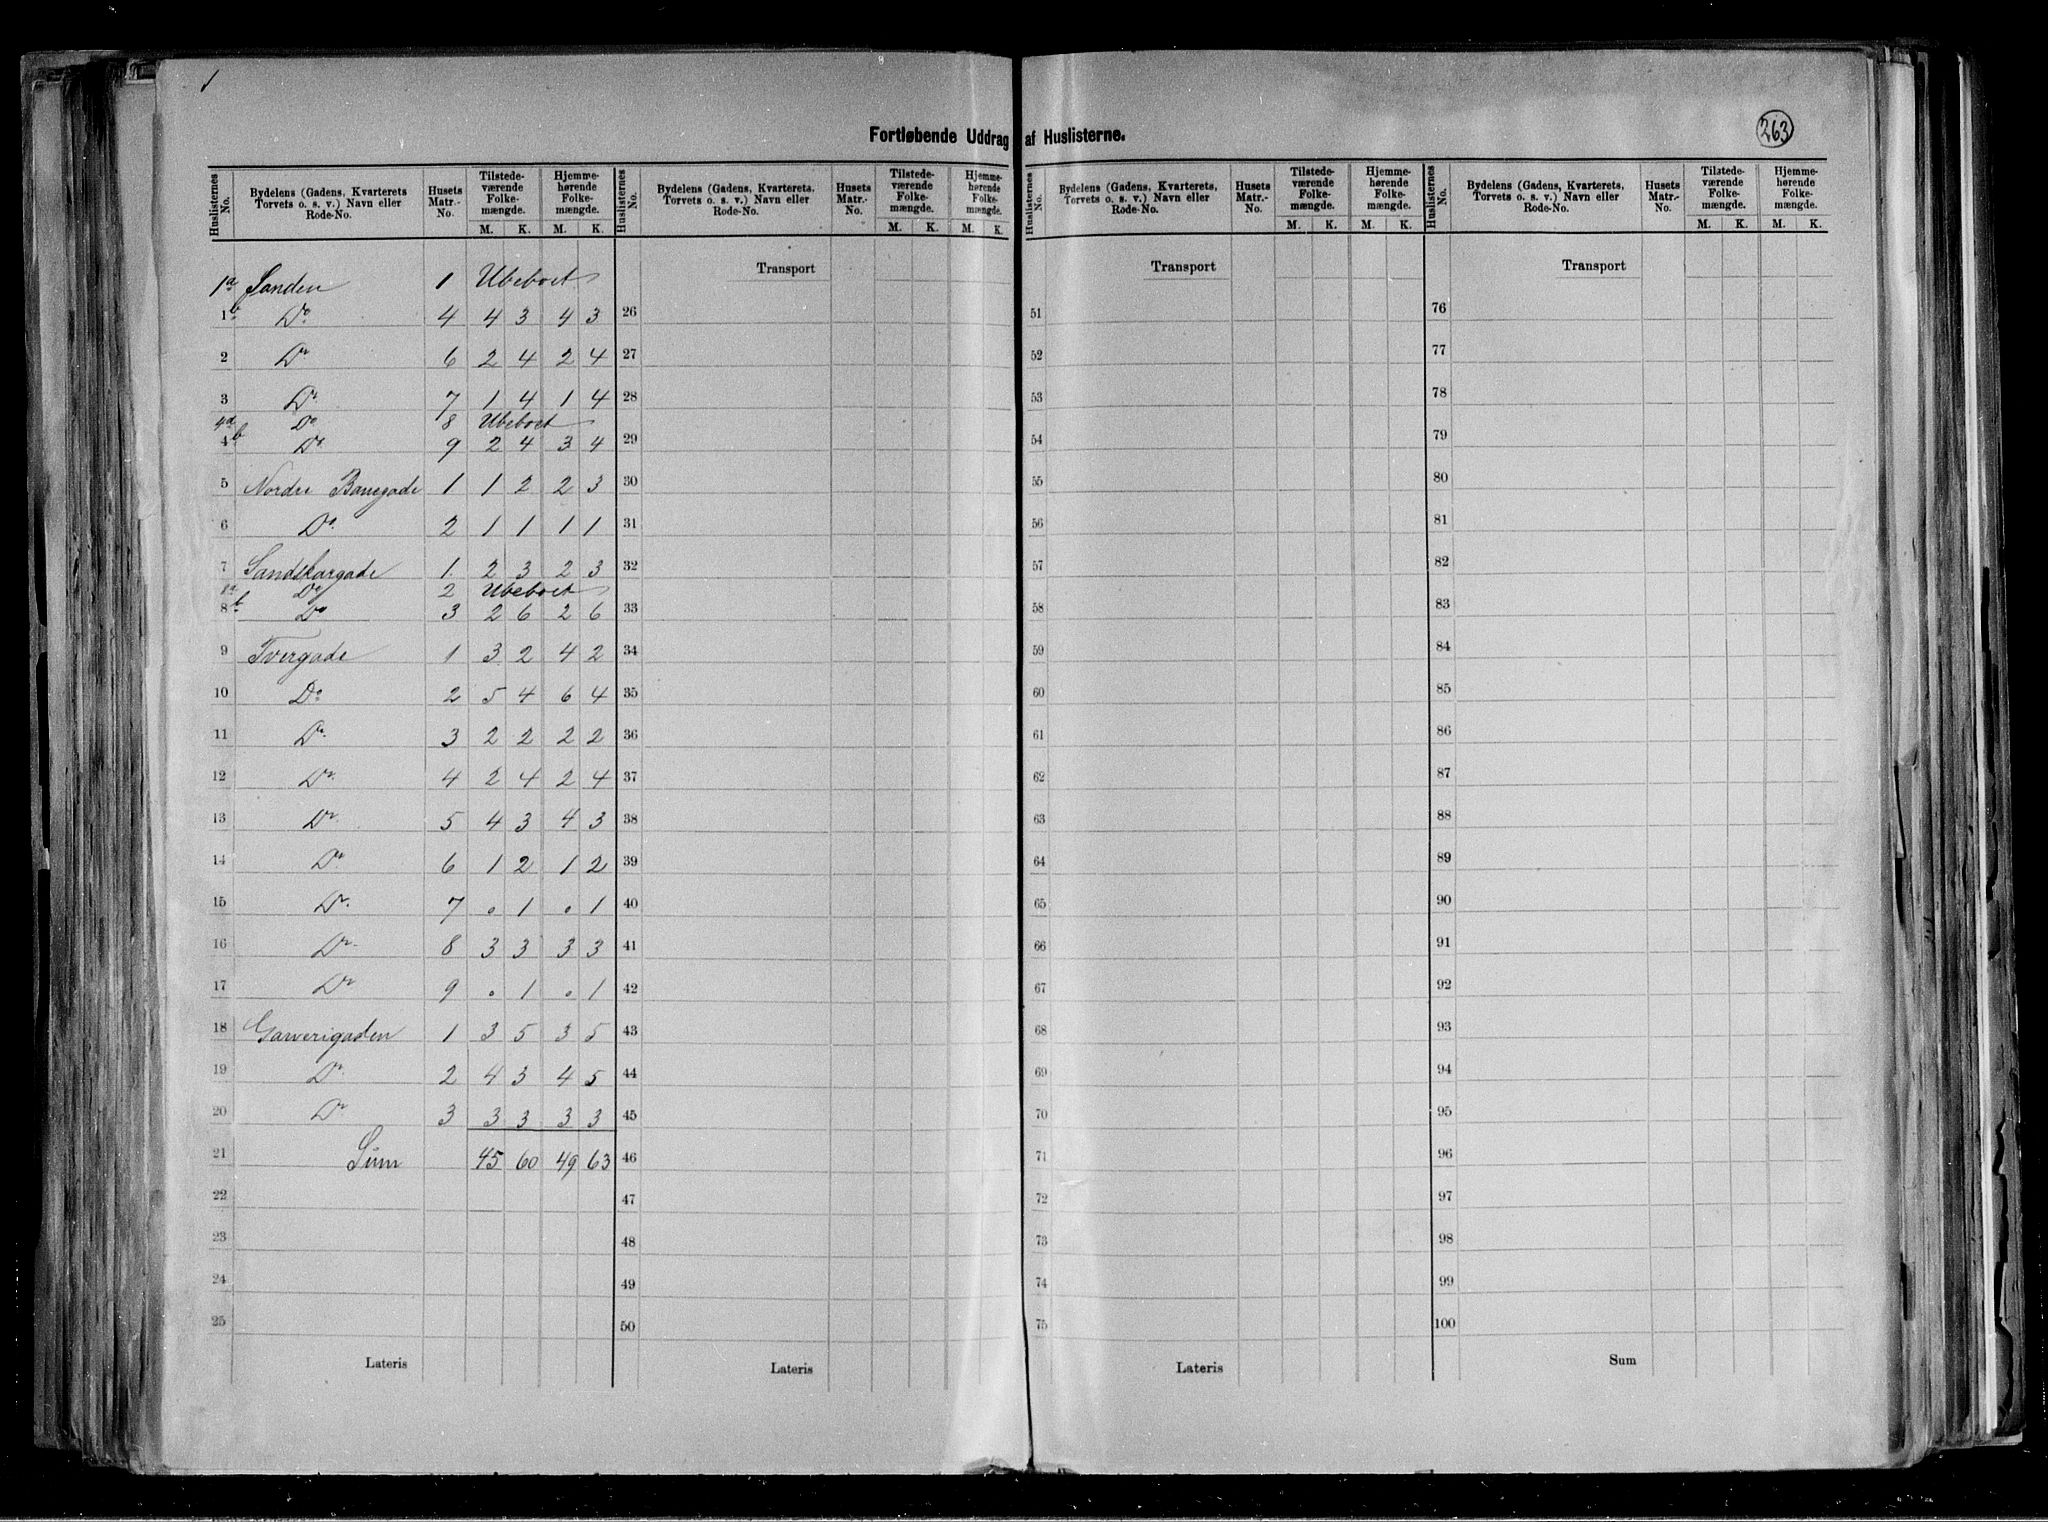 263
Fortløbende Uddrag af Huslisterne.
Huslisternes No. | Bydelens (Gadens, Kvarterets Torvets o. s. v.) Navn eller Rode-No. | Husets Matr.-No. | Tilstedeværende Folkemængde. M. K. | Hjemmehørende Folkemængde. M. K.
Huslisternes No. | Bydelens (Gadens, Kvarterets, Torvets o. s. v.) Navn eller Rode-No. | Husets Matr.-No. | Tilstedeværende Folkemængde. M. K. | Hjemmehørende Folkemængde. M. K.
Huslisternes No. | Bydelens (Gadens, Kvarterets, Torvets o. s. v.) Navn eller Rode-No. | Husets Matr.-No. | Tilstedeværende Folkemængde. M. K. | Hjemmehørende Folkemængde. M. K.
Huslisternes No. | Bydelens (Gadens, Kvarterets, Torvets o. s. v.) Navn eller Rode-No. | Husets Matr.-No. | Tilstedeværende Folkemængde. M. K. | Hjemmehørende Folkemængde. M. K.
1a Sanden 1 Ubeboet
1b Do 4 4 3 4 3
2 Do 6 2 4 2 4
3 Do 7 1 4 1 4
4a Do 8 Ubeboet
4b Do 9 2 4 3 4
5 Nordre Banegade 1 1 2 2 3
6 Do 2 1 1 1 1
7 Sandskargade 1. 2 3 2 3
8a Do 2 Ubeboet
8b Do 3 2 6 2 6
9 Tvergade 1 3 2 4 2
10 Do 2 5 4 6 4
11 Do 3 2 2 2 2
12 Do 4 2 4 2 4
13 Do 5 4 3 4 3
14 Do 6 1 2 1 2
15 Do 7 . 1 . 1
16 Do 8 3 3 3 3
17 Do 9 . 1 . 1
18 Garverigaden 1 3 5 3 5
19 Do 2 4 3 4 5
20 Do 3 3 3 3 3
21 Sum 45 60 49 63
22
23
24
25
Lateris
Transport
26
27
28
29
30
31
32
33
34
35
36
37
38
39
40
41
42
43
44
45
46
47
48
49
50
Lateris
Transport
51
52
53
54
55
56
57
58
59
60
61
62
63
64
65
66
67
68
69
70
71
72
73
74
75
Lateris
Transport
76
77
78
79
80
81
82
83
84
85
86
87
88
89
90
91
92
93
94
95
96
97
98
99
100
Sum